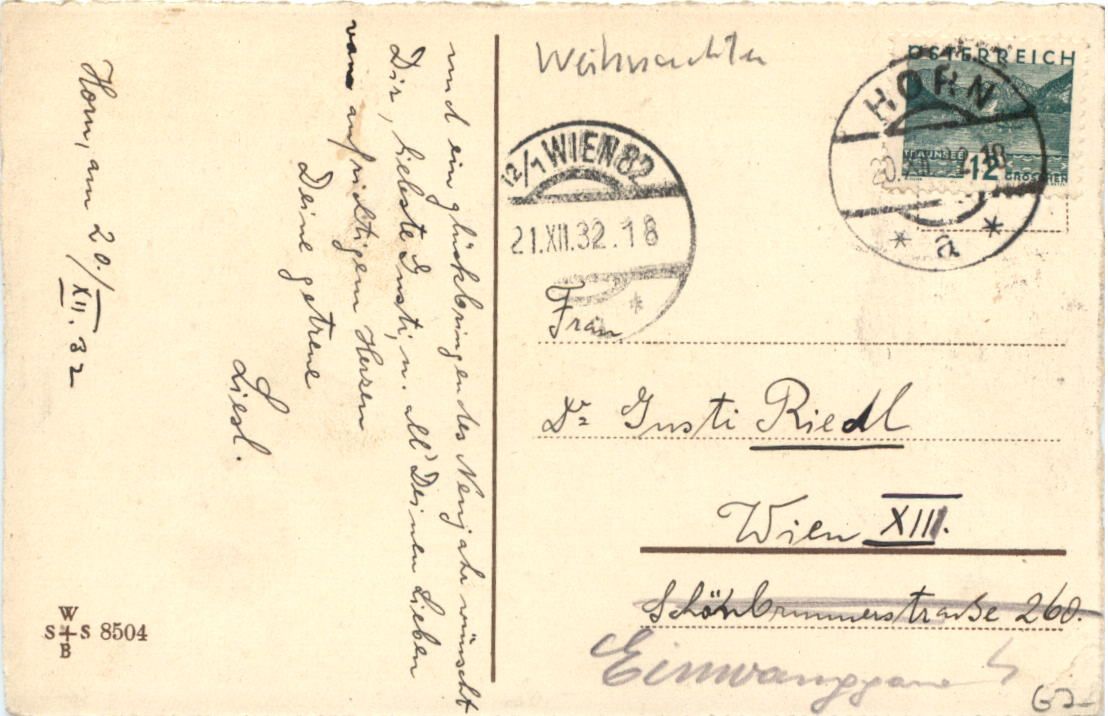 Horn, am 20./XII. 32
und ein glückbringendes Neujahr wünscht
Dir, liebste Gusti, u. all' Deinen Lieben
von aufrichtigem Herzen
Deine getreue
Liesl.
W
S S 8504
B
Weihnachten
ÖSTERREICH
TRAUNSEE
12 GROSCHEN
HORN
20.XII.32.18
* a *
12/1 WIEN 82
21.XII.32.18
*
Frau
Dr Gusti Riedl
Wien XIII.
Schönbrunnerstraße 260.